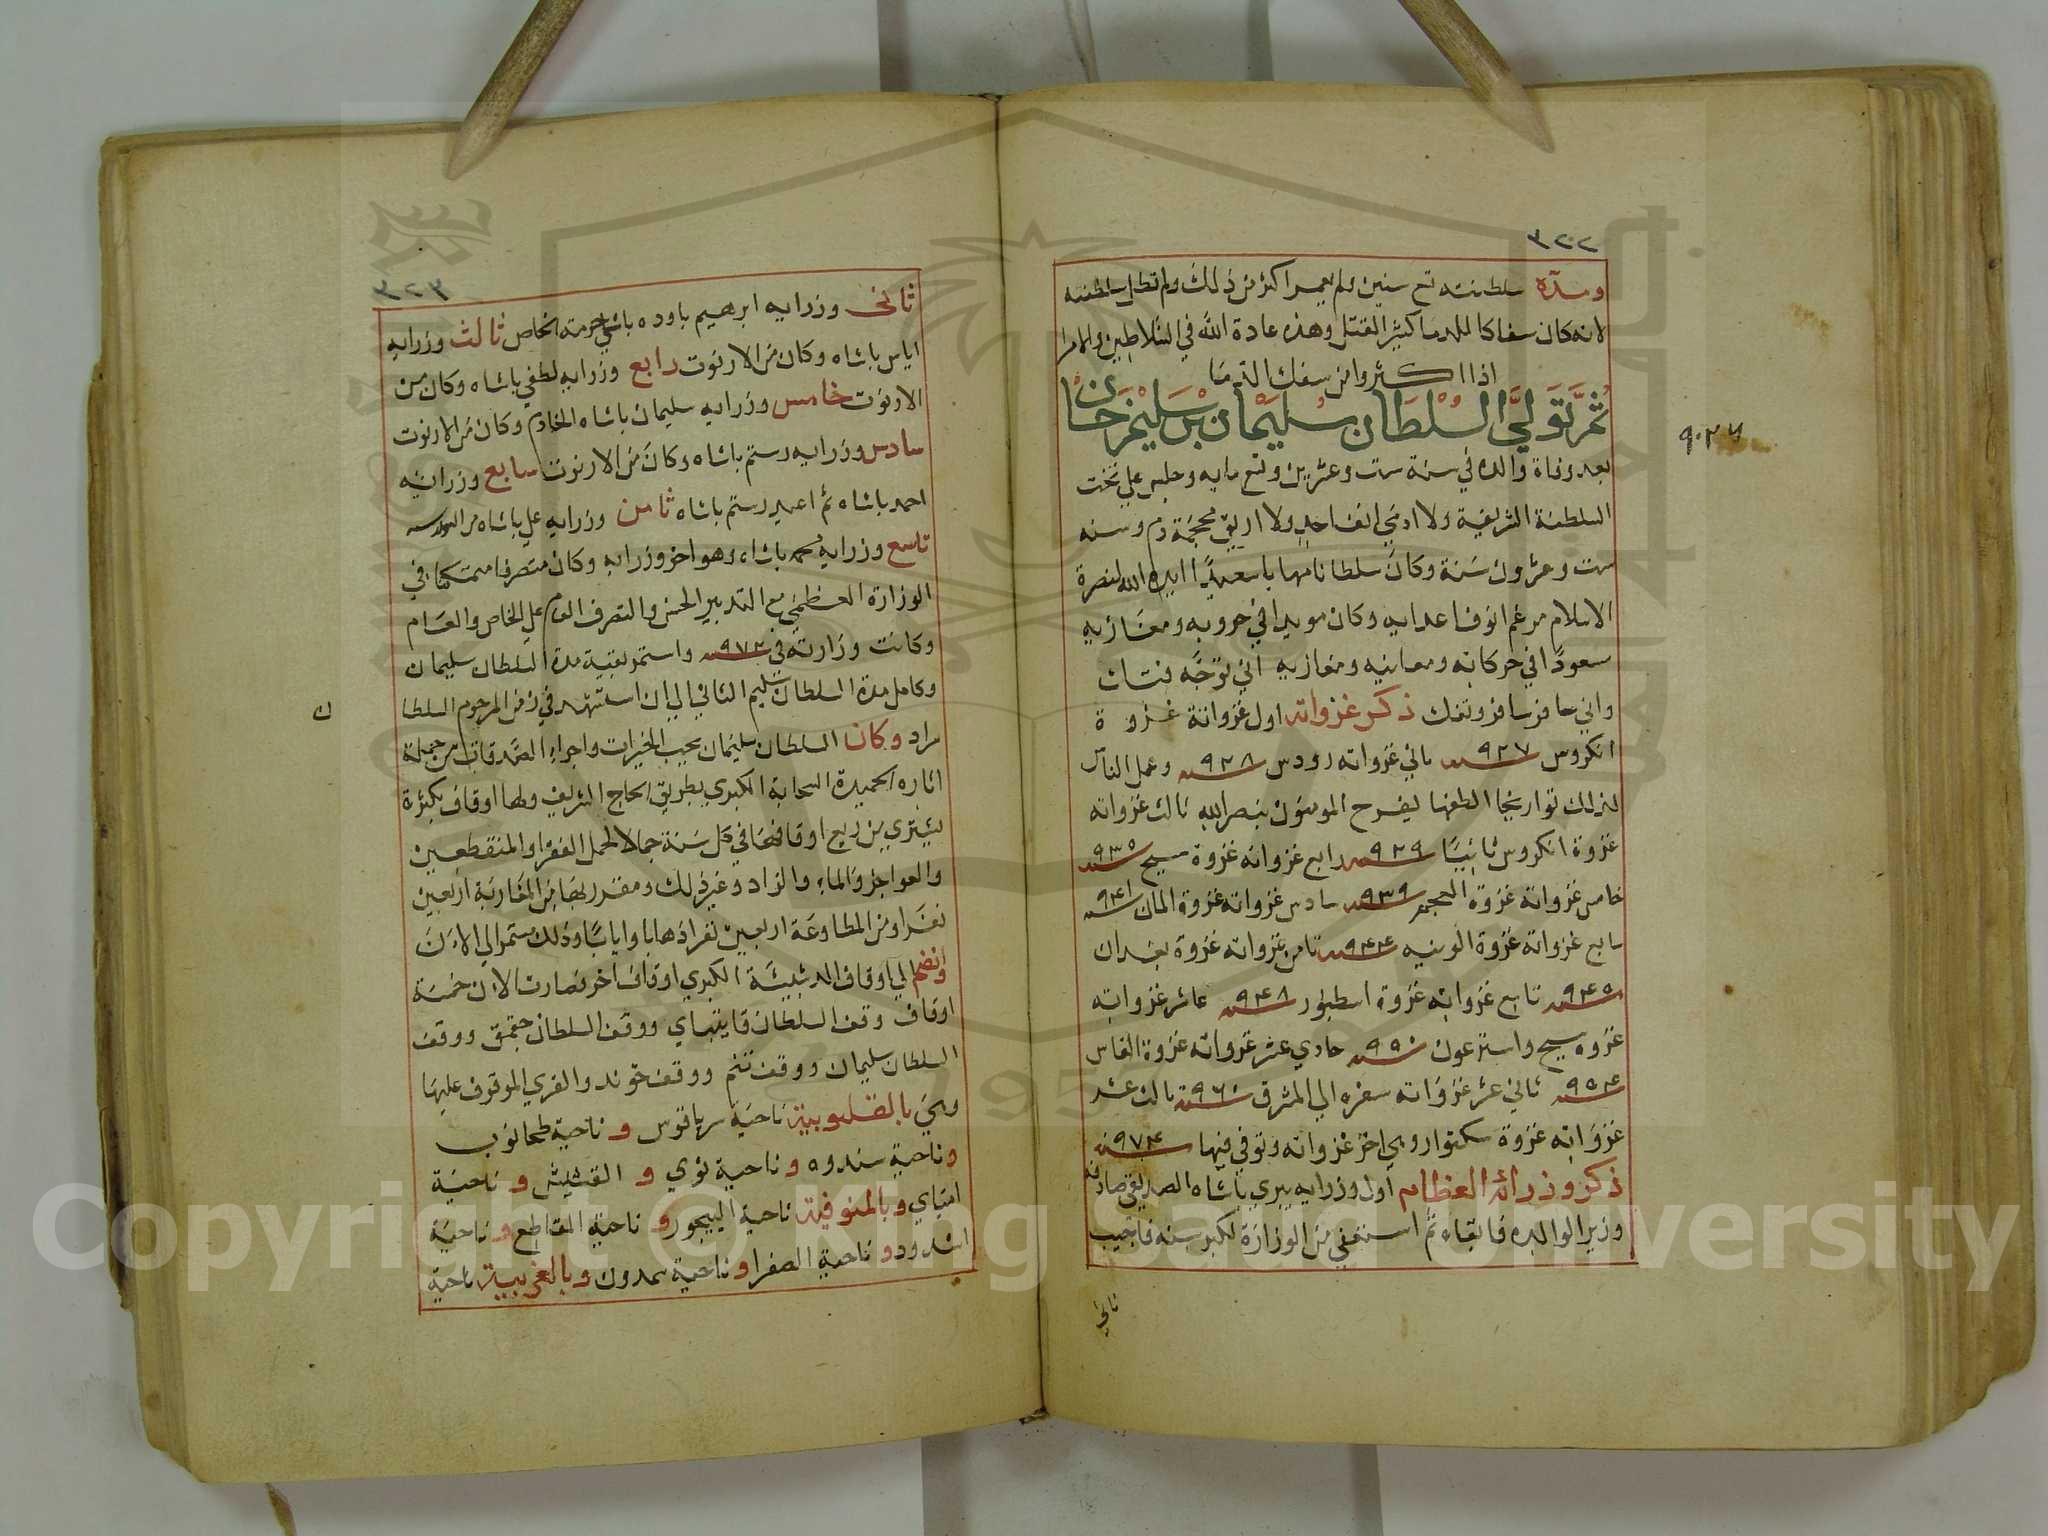 ٣٢٢
ومدة سلطنته تسع سنين ولم يعمر اكثر من ذلك ولم تطل سلطنته
لانه كان سفاكا للدما كثير القتل وهذه عادة الله في السلاطين والامرا
اذا اكثروا من سفك الدما
ثم تولى السلطان سليمان بن سليم خان
٩٠٢٦
بعد وفاة والده في سنة ست وعشرين وتسعمايه وجلس علي تخت
السلطنة الشريفة ولا ادمي انف احد ولا اريق محجمة دم وسنه
ست وعشرون سنة وكان سلطانا مهابا سعيدا ايده الله لنصرة
الاسلام مرغم انوف اعدايه وكان مويدا في حروبه ومغازيه
سعودا في حركاته ومعانيه ومغازيه اني توجه فتات
واني سافر سافر وتفك ذكر غزواته اول غزواته غزوة
انكروس سنة ٩٢٧ ثاني غزواته رودس سنة ٩٢٨ وعمل الناس
لذلك تواريخا الطفها يفرح المومنون بنصر الله ثالث غزواته
غزوة انكروس ثانيا سنة ٩٢٩ رابع غزواته غزوة سيح سنة ٩٣٥
خامس غزواته غزوة العجم سنة ٩٣٩ سادس غزواته غزوة المان سنة ٩٤١
سابع غزواته غزوة الونيه سنة ٩٤٤ ثامن غزواته غزوة بغدان
سنة ٩٤٥ تاسع غزواته غزوة اسطبور سنة ٩٤٨ عاشر غزواته
غزوه سيح واسترغون سنة ٩٥٠ حادي عشر غزواته غزوة القاس
سنة ٩٥٤ ثاني عشر غزواته سفره الي المشرق سنة ٩٦٠ ثالث عشر
غزواته غزوة سكتوار وهي اخر غزواته وتوفي فيها سنة ٩٧٤
ذكر وزرائه العظام اول وزرايه بيري باشاه الصديقي صادفه
وزيرا لوالده فابقاه ثم استعفي من الوزارة لكبر سنه فاجيب
ثاني
٣٢٣
ثاني وزرايه ابرهيم باوده باشي حرمته الخاص ثالث وزرايه
اياس باشاه وكان من الارنوت رابع وزرايه لطفي باشاه وكان من
الارنوت خامس وزرايه سليمان باشاه الخادم وكان من الارنوت
سادس وزرايه رستم باشاه وكان من الارنوت سابع وزرائه
احمد باشاه ثم اعيد رستم باشاه ثامن وزرايه علي باشاه من
تاسع وزرايه محمد باشاه وهو اخر وزرايه وكان متصرفا متمكنا في
الوزارة العظمي مع التدبير الحسن والتصرف العام علي الخاص والعام
وكانت وزارته في سنة ٩٧٢ واستمر بقية مدة السلطان سليمان
وكامل مدة السلطان سليم الثاني الي ان استشهد في زمن المرحوم السلطا
ن
مراد وكان السلطان سليمان يحب الخيرات واجراء الصدقات من جملة
اثاره الحميدة السحابة الكبري بطريق الحاج الشريف ولها اوقاف بكثرة
يشتري من ريع اوقافها في كل سنة جمالا لحمل الفقرا والمنقطعين
والعواجز والماء والزاد وغير ذلك ومقدر بها من المغاربة اربعين
نفرا ومن المطاوعة اربعين نفرا ذهابا وايابا وذلك مستمر الي الان
وانضم الي اوقاف الدشيشة الكبري اوقاف اخر فصارت الان خمسة
اوقاف وقف السلطان قايتباي ووقف السلطان جقمق ووقف
السلطان سليمان ووقف تنم ووقف خوند والقري الموقوف عليها
وهي بالقليوبية ناحية سرياقوس و ناحية طحانوب
وناحية سندوه و ناحية نوي و القشيش و ناحية
امياي وبالمنوفية ناحية البيجور و ناحية القاطع و ناحية
اشدود و ناحية الصفرا و ناحية سمدون وبالغربية ناحية
Copyright © King Saud University